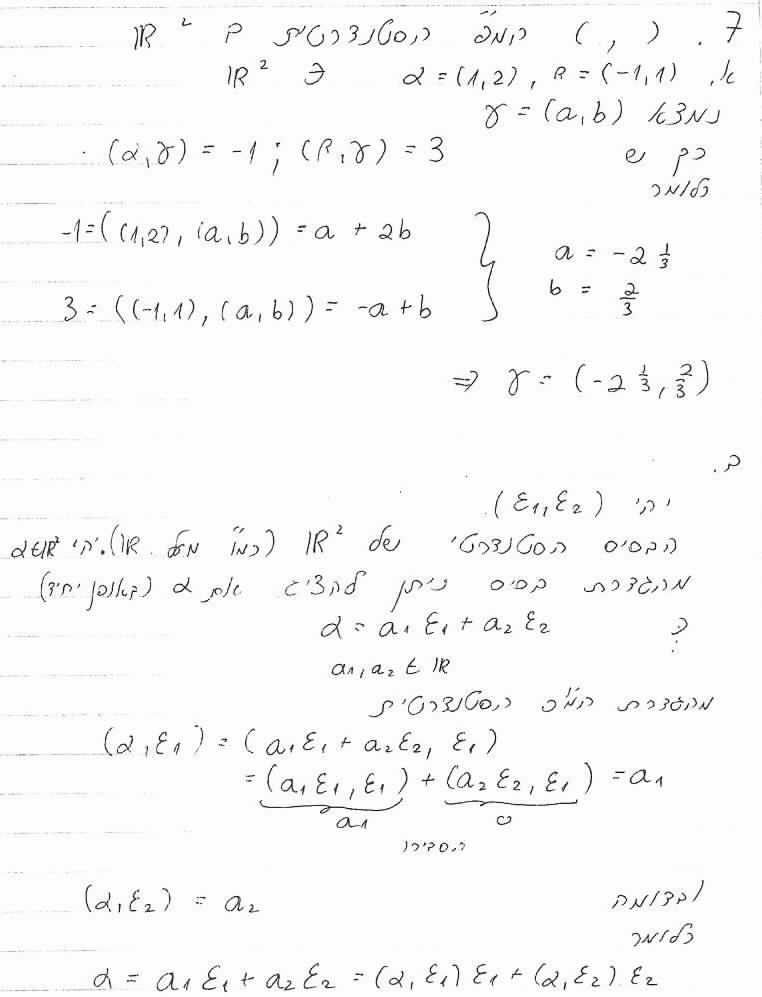 7. ( , ) המ״פ הסטנדרטית ב ℝ²
א. α = (1,2), β = (-1,1) ∋ ℝ²
נמצא γ = (a,b)
כך ש (α,γ) = -1 ; (β,γ) = 3
כלומר
-1 = ((1,2), (a,b)) = a + 2b
a = -2 1/3
b = 2/3
3 = ((-1,1), (a,b)) = -a + b
⇒ γ = (-2 1/3, 2/3)
ב.
יהי (ε₁, ε₂)
הבסיס הסטנדרטי של ℝ² (כמ״ו מעל ℝ). יהי α∈ℝ²
מהגדרת בסיס ניתן להציג את α (באופן יחיד)
כ: α = a₁ε₁ + a₂ε₂
a₁, a₂ ∈ ℝ
מהגדרת המ״פ הסטנדרטית
(α, ε₁) = (a₁ε₁ + a₂ε₂, ε₁)
= (a₁ε₁, ε₁) + (a₂ε₂, ε₁) = a₁
a₁ 0
הסבירו
ובדומה (α, ε₂) = a₂
כלומר
α = a₁ε₁ + a₂ε₂ = (α, ε₁)ε₁ + (α, ε₂)ε₂